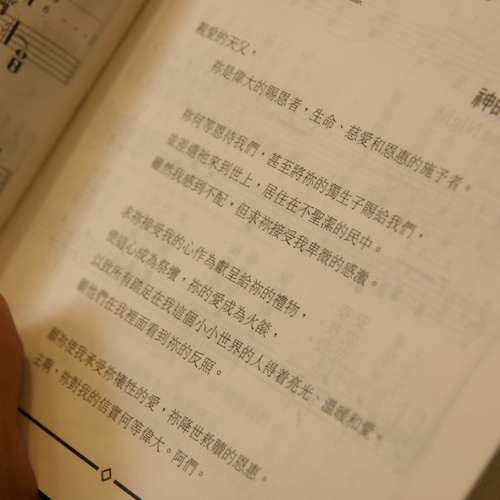 親愛的天父，
祢是偉大的賜恩者，生命、慈愛和恩惠的施予者。
祢何等恩待我們，甚至將祢的獨生子賜給我們，
並差遣祂來到世上，居住在不聖潔的民中。
雖然我感到不配，但求祢接受我卑微的感激。
求祢接受我的心作為獻呈給祢的禮物，
使這心成為祭壇，祢的愛成為火燄，
以致所有踏足在我這個小小世界的人得着亮光、溫暖和愛，
願他們在我裡面看到祢的反照。
願祢使我承受祢犧牲的愛，祢降世救贖的恩惠。
主啊，祢對我的信實何等偉大。阿們。
神的
B